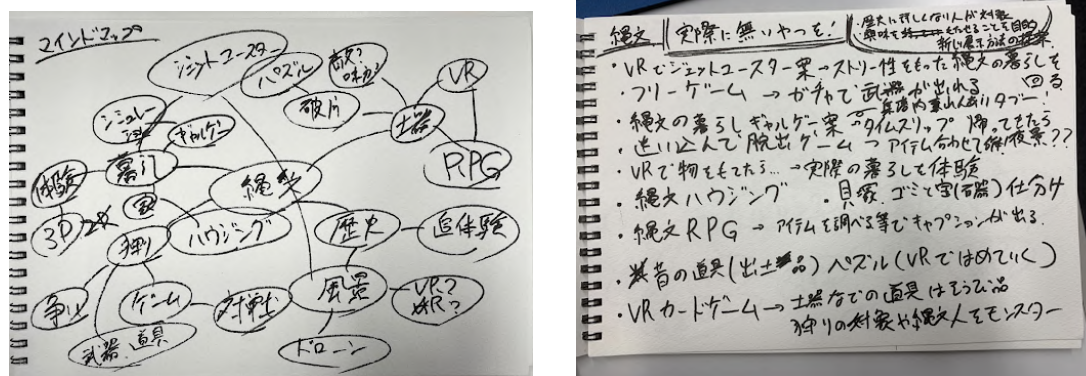 マインドマップ
ジェットコースター
パズル
VR
破片
土器
RPG
ギャルゲー
暮らし
体験
3D
家
縄文
ハウジング
歴史
追体験
狩り
争い
ゲーム
対戦
風景
VR?
AR?
武器、道具
ドローン
縄文 実際に無いやつを!
・歴史に詳しくない人が対象
興味を持たせることを目的
新しい展示方法の提案
・VRでジェットコースター案→ストーリー性をもった縄文の暮らしを回る
・フリーゲーム→ガチャで武器が出れる
・縄文の暮らしギャルゲー案 タイムスリップ 帰ってもたろ
・迷い込んで脱出ゲーム→アイテム合わせて
・VRで物をもてたら…→実際の暮らしを体験
・縄文ハウジング ・貝塚 ゴミと宝(石器)仕分け
・縄文RPG→アイテムを調べる等でキャプションが出る
・昔の道具(出土品)パズル(VRではめていく)
・VRカードゲーム→土器などの道具はそうび品
狩りの対象や縄文人をモンスター